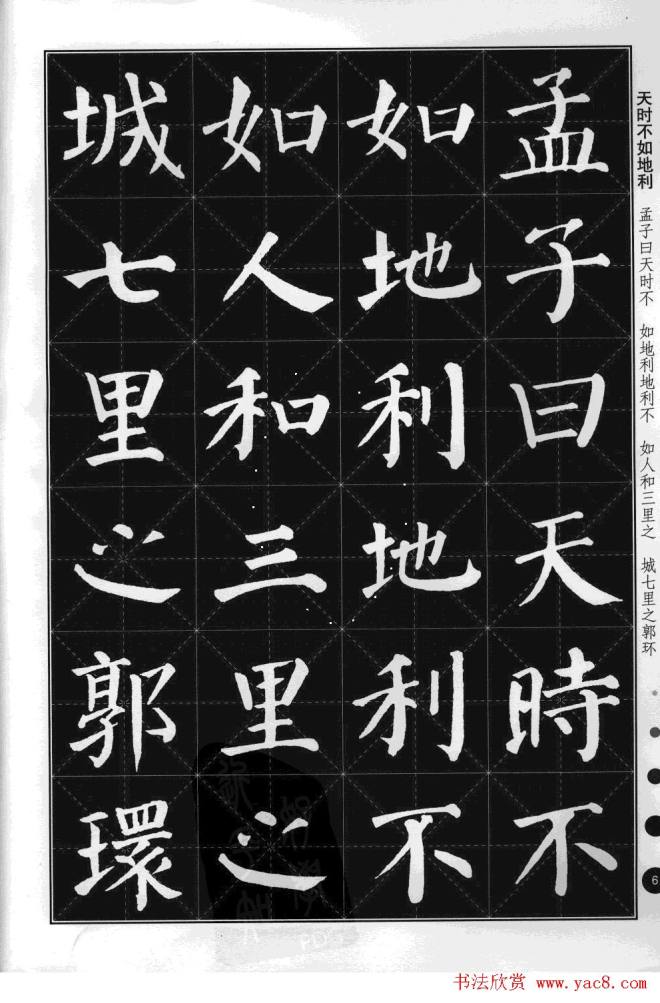 孟子曰天時不
如地利地利不
如人和三里之
城七里之郭環
天时不如地利 孟子曰天时不 如地利地利不 如人和三里之 城七里之郭环
6
书法欣赏 www.yac8.com